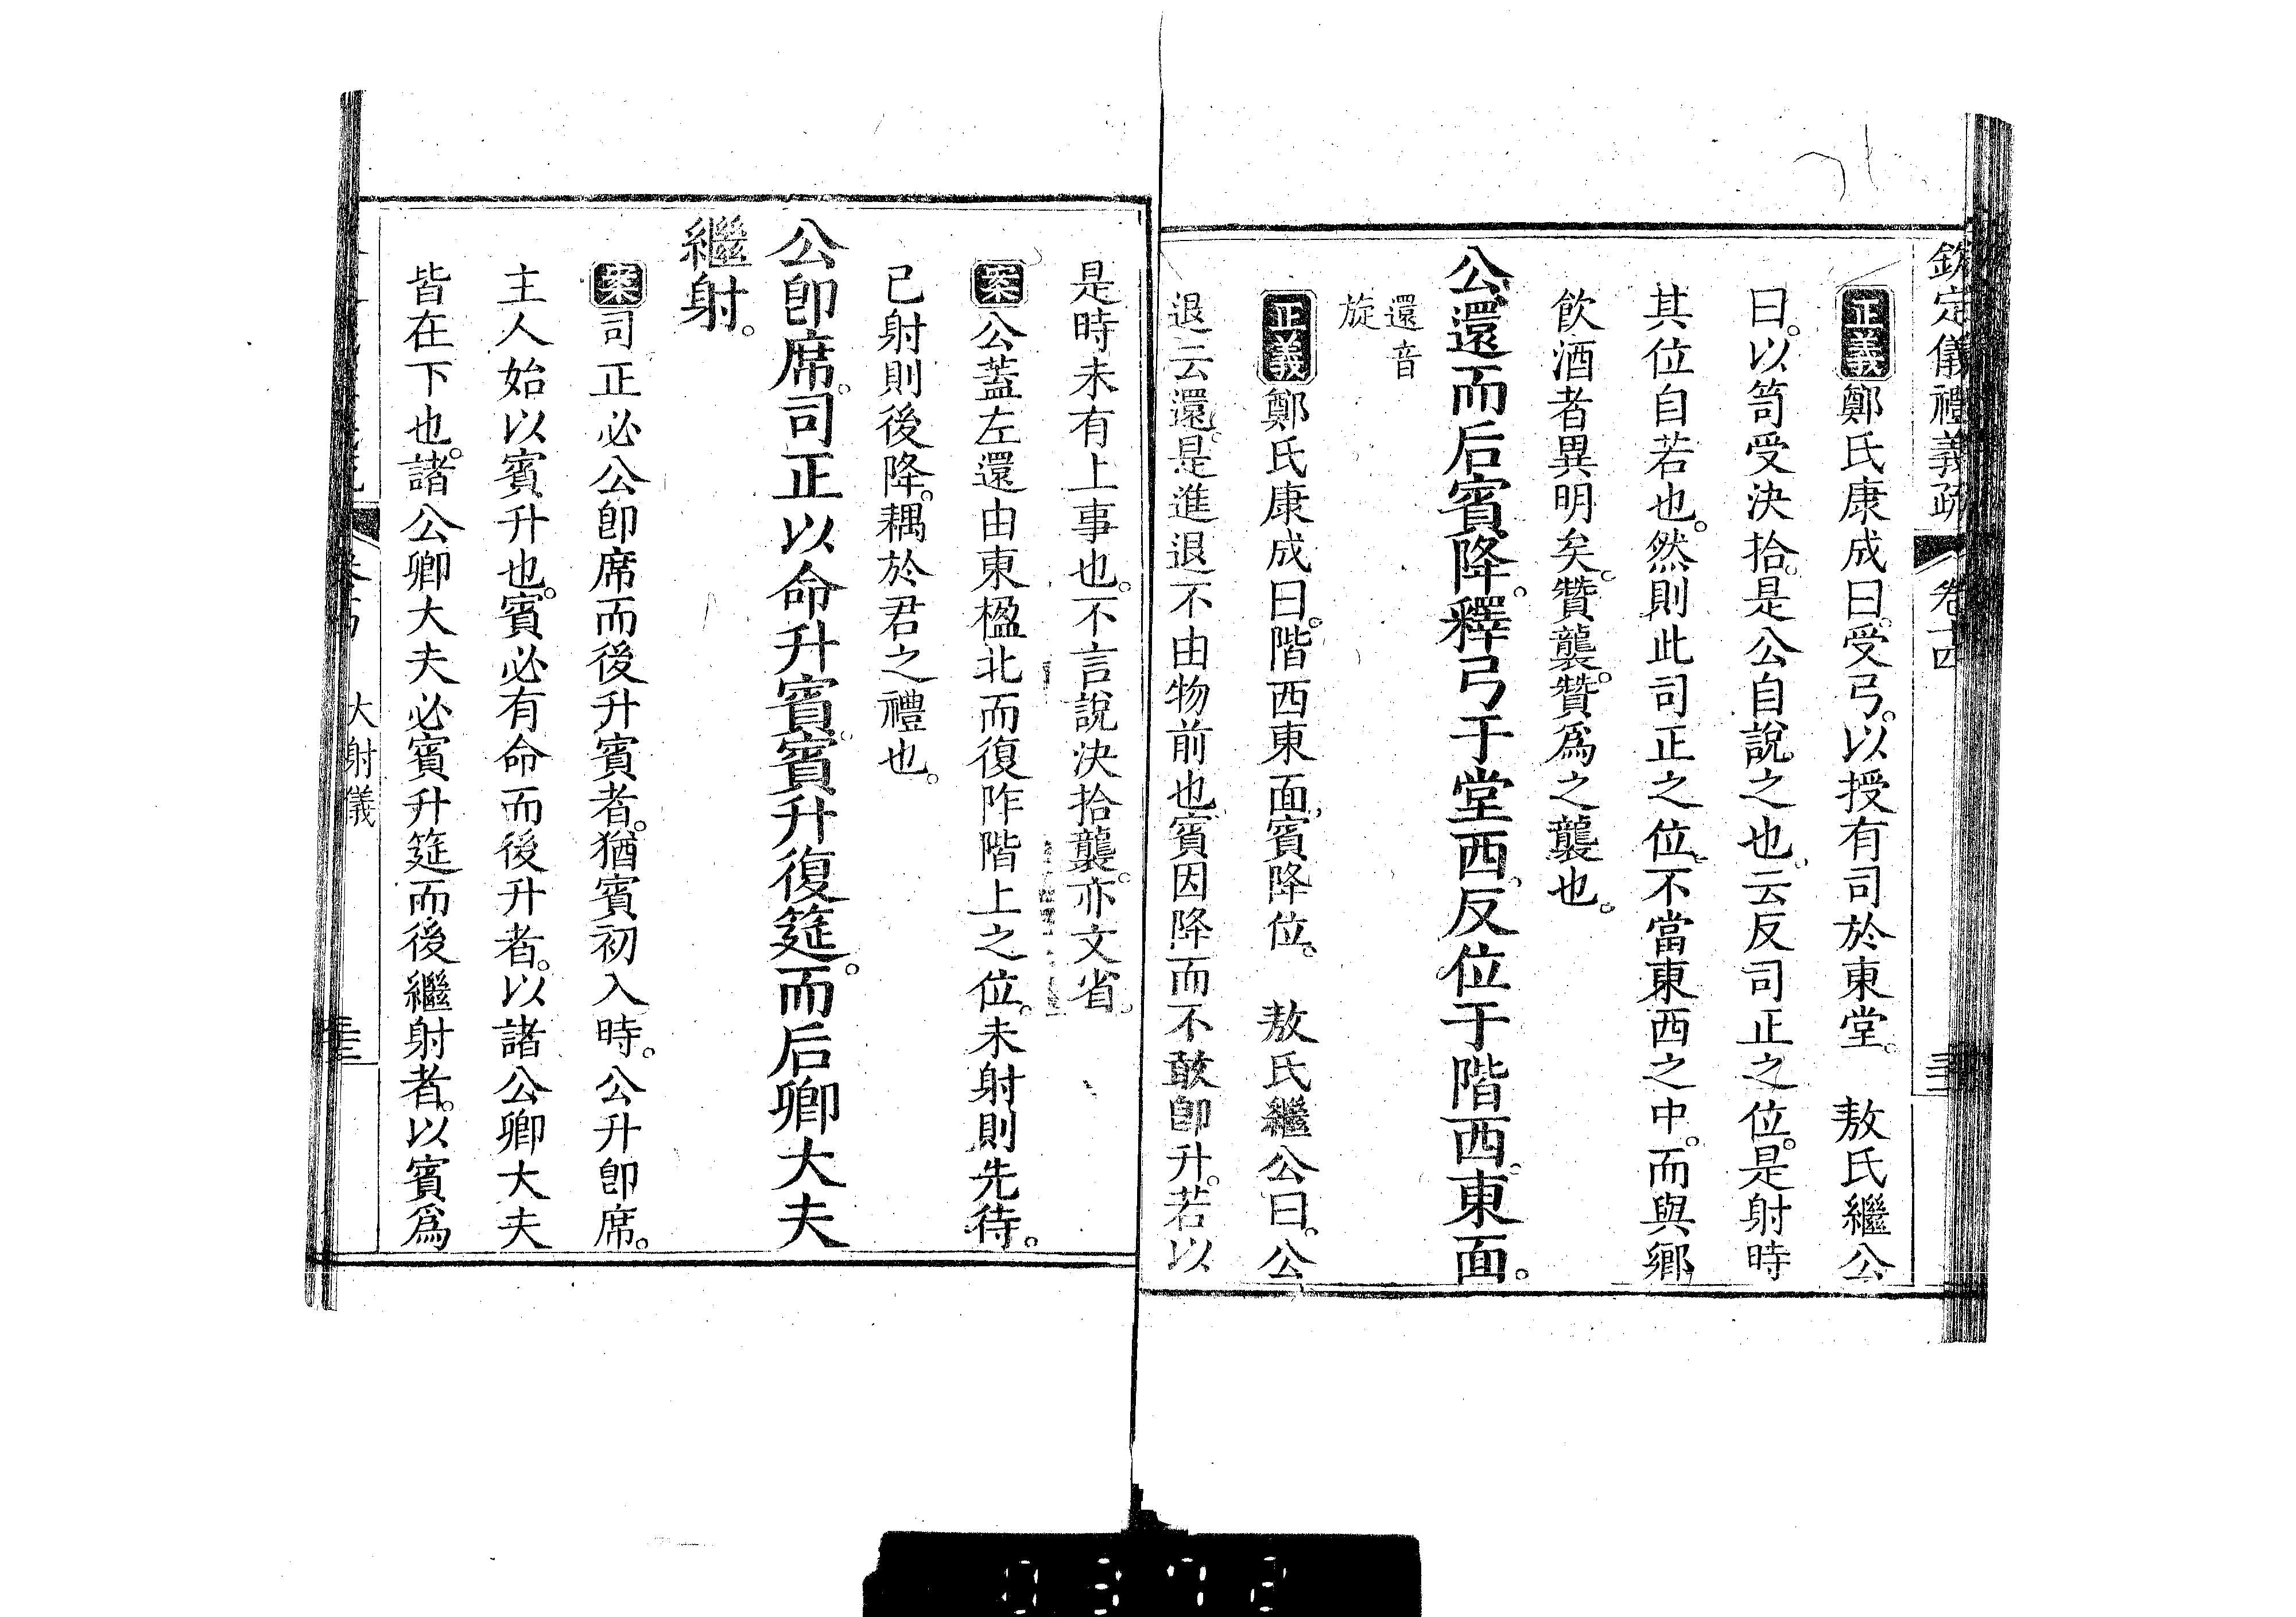 欽定儀禮義疏　卷十四
正義鄭氏康成曰。受弓。以授有司於東堂。　敖氏繼公
曰。以笥受決拾。是公自說之也。云反司正之位。是射時
其位自若也。然則此司正之位。不當東西之中。而與鄉
飲酒者異明矣。贊襲。贊爲之襲也。
公還而后賓降。釋弓于堂西。反位于階西。東面。
還音
旋
正義鄭氏康成曰。階西東面。賓降位。　敖氏繼公曰。公
退云還。是進退不由物前也。賓因降而不敢卽升。若以
是時未有上事也。不言說決拾襲。亦文省。
案公蓋左還由東楹北而復阼階上之位。未射則先待。
已射則後降。耦於君之禮也。
公卽席。司正以命升賓。賓升復筵。而后卿大夫
繼射。
案司正必公卽席而後升賓者。猶賓初入時。公升卽席。
主人始以賓升也。賓必有命而後升者。以諸公卿大夫
皆在下也。諸公卿大夫必賓升筵而後繼射者。以賓爲
大射儀
0372